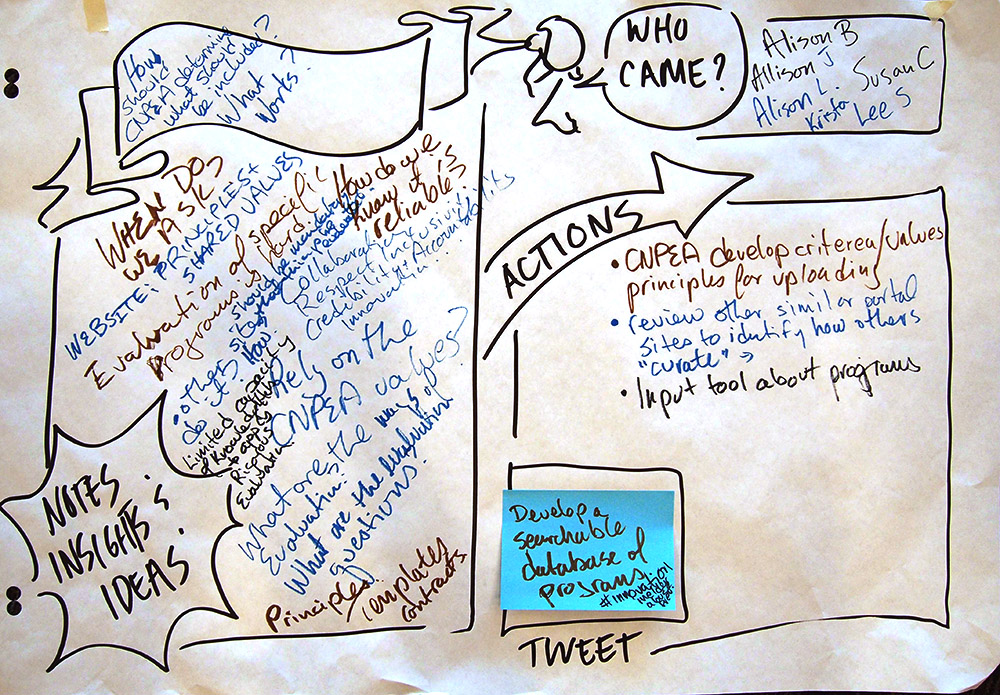 How
should
CNPEA determine
what should
be included?
What
works?
WHO
CAME?
Alison B
Allison J
Alison L.
Krista
Susan C
Lee S
WHEN DO
WE ASK
WEBSITE: PRINCIPLES +
SHARED VALUES
Evaluation of specific
programs is hard.
How do we
know it is
reliable
Collaboration
Respect Inclusivity
Credibility Accountability
Innovation...
• other sites
do it? How
Rely on the
CNPEA values?
Limited capacity
of knowledge
to apply
Rigorous
Evaluation
What are the ways of
Evaluation?
What are the evaluation
questions.
Principles!
Templates
contracts
NOTES
INSIGHTS &
IDEAS
ACTIONS
• CNPEA develop criterea/values
principles for uploading
• review other similar portal
sites to identify how others
"curate" →
• Input tool about programs
Develop a
searchable
database of
programs.
#innovation
TWEET